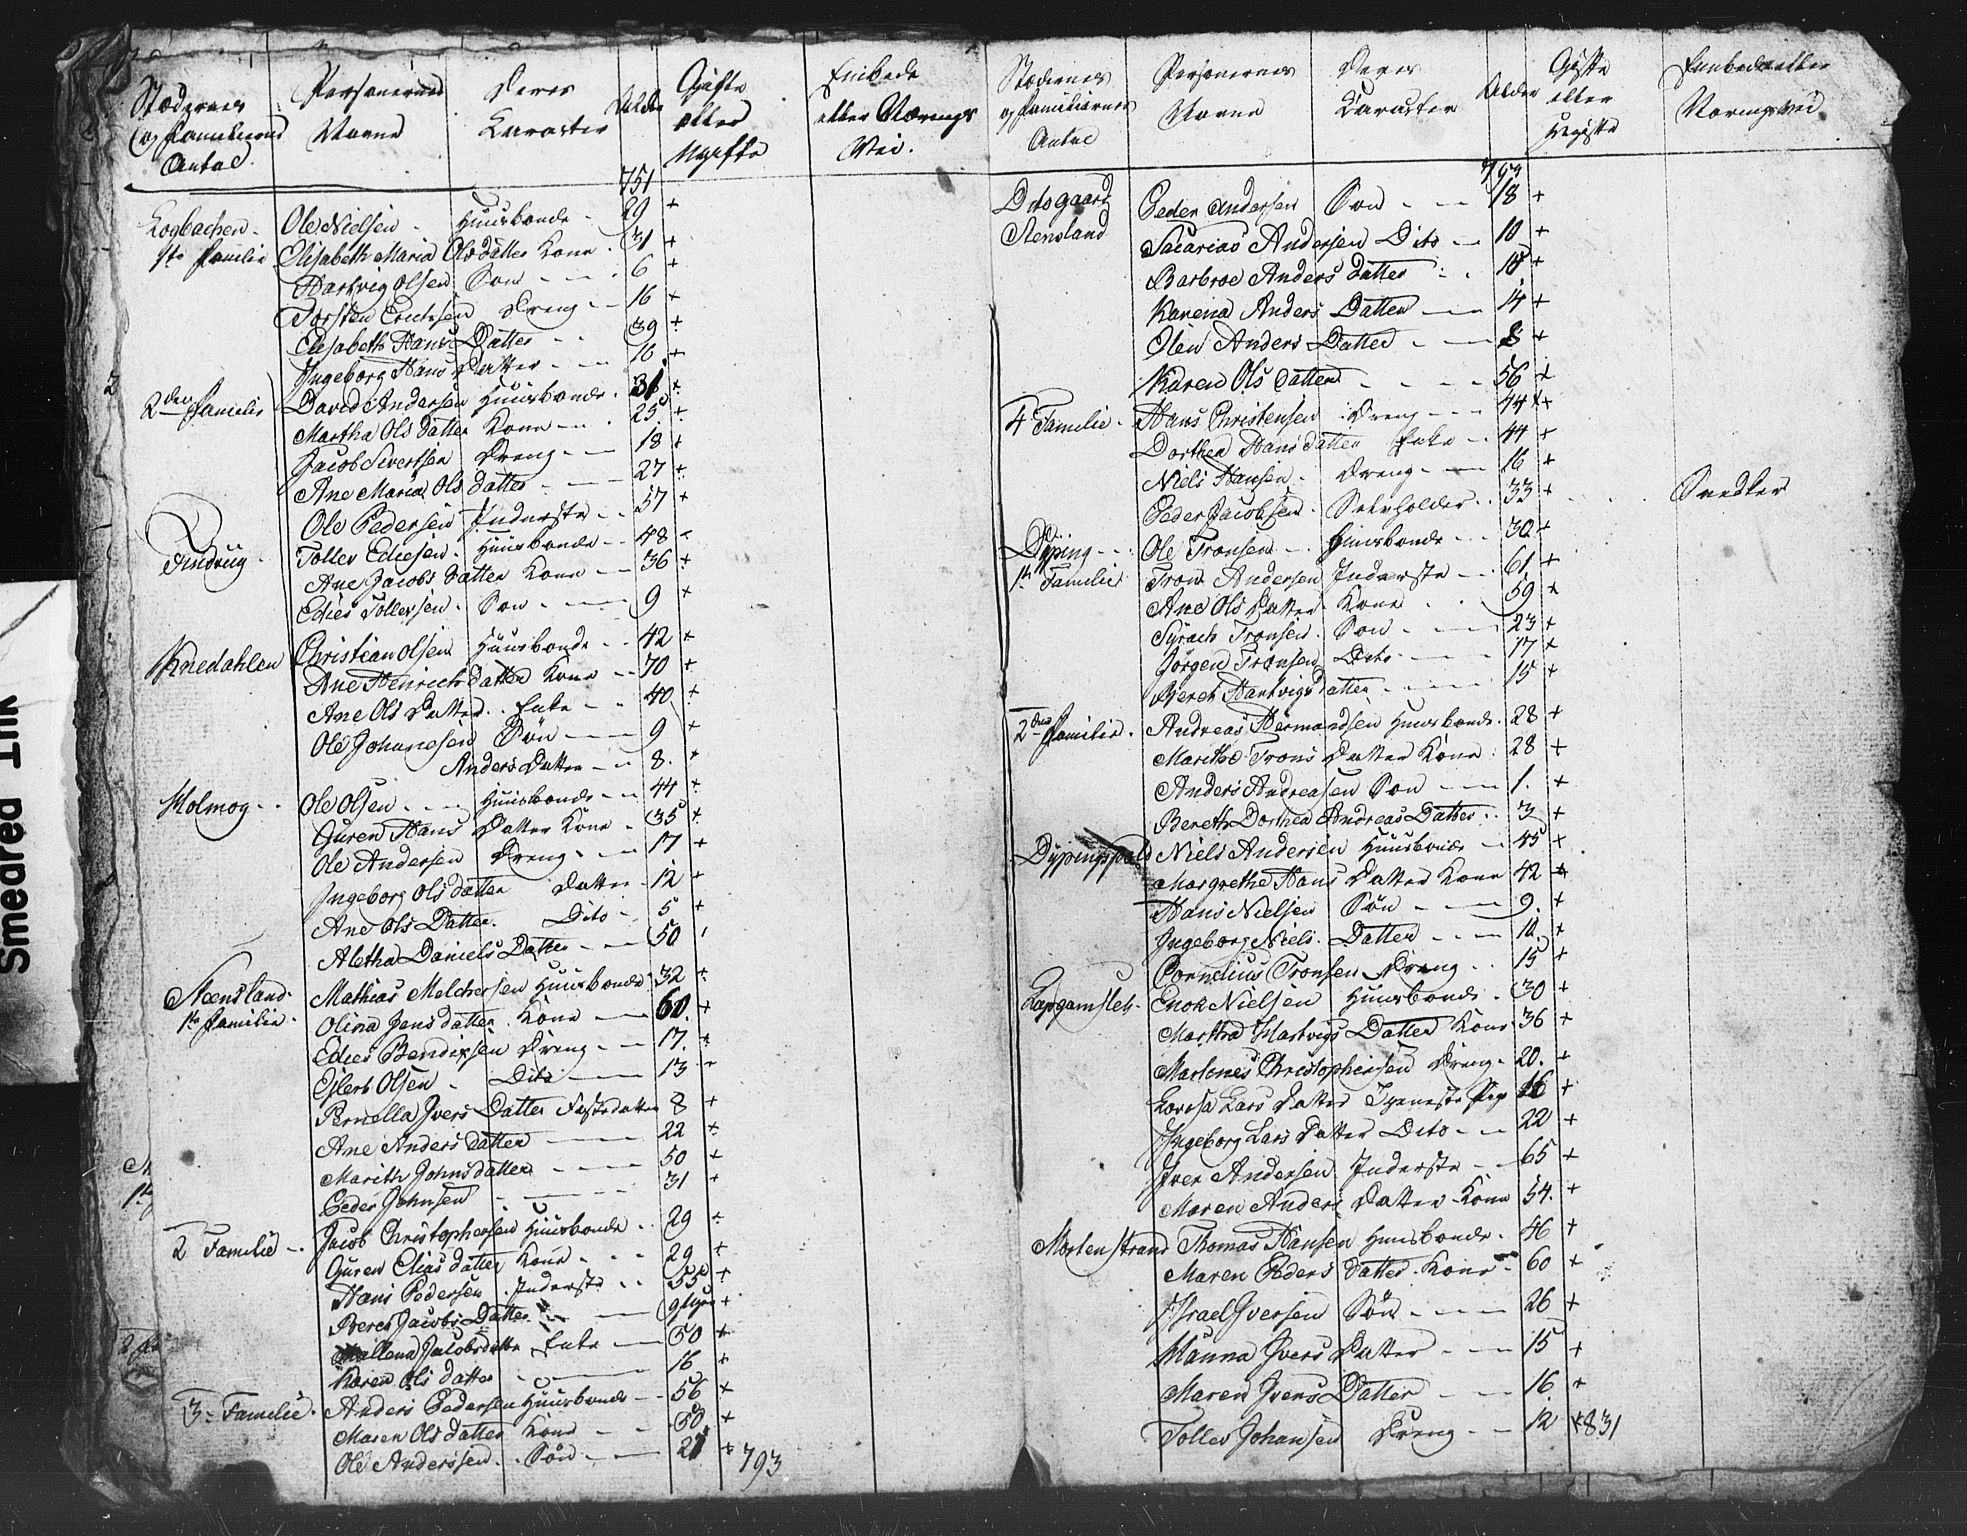 Stædernes Personernes Deres Alder Gifte Embede
og Familiernes Navne Karacter eller eller Nærings
Antal Ugifte Vei.
751
Ole Nielsen Huusbonde 29 +
1te Familie Elisabeth Maria Olsdatter Kone 31 +
Hartvig Olsen Søn 6 +
Torsten Erichsen Dreng 16 +
Elisabeth Hans Datter 39 +
Ingeborg Hans Datter 16 +
2den Familie David Andersen Huusbonde 31 +
Martha Ols datter Kone 25 +
Jacob Sivertsen Dreng 18 +
Ane Maria Ols datter 27 +
Ole Pedersen Inderste 57 +
Finbrug Toller Ediesen Huusbonde 48 +
Ane Jacobs datter Kone 36 +
Edies Tollersen Søn 9 +
Knedahlen Christian Olsen Huusbonde 42 +
Ane Henrichsdatter Kone 70 +
Ane Ols Datter Enke 40 +
Ole Johanesen Søn 9 +
Anders Datter 8 +
Holmog Ole Olsen Huusbonde 44 +
Guren Hans Datter Kone 35 +
Ole Andersen Dreng 17 +
Ingeborg Olsdatter Datter 12 +
Ane Ols Datter Dito 5 +
Aletha Daniels Datter 50
Steensland Mathias Melchersen Huusbonde 32 +
1te Familie Olina Jens datter Kone 60 +
Edies Bendixsen Dreng 17 +
Ejlert Olsen Dito 13
Pernella Jvers Datter Fostedatter 8 +
Ane Anders datter 22 +
Marith Johnsdatter 50 +
Peder Johnsen 31 +
2 Familie Jacob Christophersen Huusbonde 29 +
Guren Elias datter Kone 29 +
Hans Pedersen Inderste 55 +
Beret Jacobs Datter 9 +
Mallena Jacobsdatter Enke 50 +
Karen Ols datter 16 +
3 Familie Anders Pedersen Huusbonde 56 +
Maren Ols datter Kone 50 +
Ole Anderssen Søn 21 + 793
Stædernes Personernes Deres Alder Gifte Embede eller
og Familiernes Navne Karacter eller Nærings vei
Antal Ugifte
793
Ditogaard Peder Andersen Søn 18 +
Stensland Sacarias Andersen Dito 10 +
Barbroe Anders Datter 18 +
Karena Anders Datter 14 +
Olen Anders Datter 8 +
Karen Ols Datter 56 +
4 Familie Hans Christensen Dreng 44 +
Dorthea Hans datter Enke 44 +
Niels Hansen Dreng 16 +
Peder Jacobsen 33 + Snedker
Dyping Ole Tronsen Huusbonde 30 +
1te Familie Tron Andersen Inderste 61 +
Ane Ols Datter Kone 59 +
Syrach Tronsen Søn 23 +
Jörgen Tronsen Dito 17 +
Beret Hartvigs Datter 15 +
2den Familie Andreas Hermandsen Huusbonde 28 +
Marithe Trons Datter Kone 28 +
Anders Andreasen Søn 1 +
Bereth Dorthea Andreas Datter 3 +
Niels Andersen Huusbonde 45 +
Margrethe Hans Datter Kone 42 +
Hans Nielsen Søn 9 +
Ingeborg Niels Datter 10 +
Cornelius Tronsen Dreng 15 +
Enok Nielsen Huusbonde 30 +
Martha Hartvigs Datter Kone 36 +
Martenes Christophersen Dreng 20 +
Lovisa Lars Datter Tjeneste Pige 16 +
Ingeborg Lars Datter Dito 22 +
Iver Andersen Inderste 65 +
Maren Anders Datter Kone 54 +
Mortenstrand Thomas Hansen Huusbonde 46 +
Maren Peders Datter Kone 60 +
Israel Iversen Søn 26 +
Manna Jvers Datter 15 +
Maren Jvers Datter 16 +
Toller Johansen Dreng 12 + 831
Smedred Ink